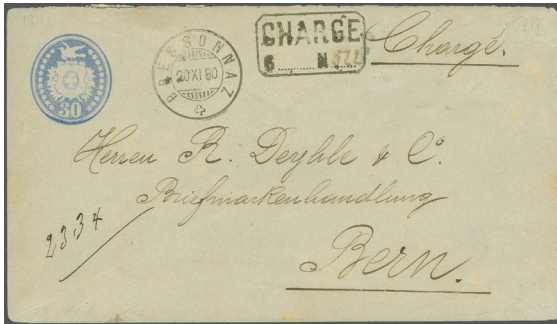 30
BRESSONNAZ
20 XI 80
CHARGÉ
N.
Chargé.
Herren R. Deyhle & Co.
Briefmarkenhandlung
Bern.
2334